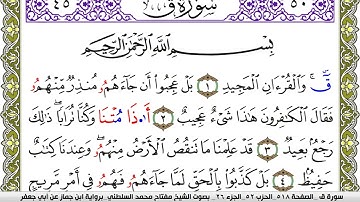 ٤٥ سُورَةُ قٓ ٥٠
بِسْمِ اللَّهِ الرَّحْمَٰنِ الرَّحِيمِ
قٓ ۚ وَالْقُرْءَانِ الْمَجِيدِ ١ بَلْ عَجِبُوا أَن جَآءَهُمُۥ مُنذِرٌ مِّنْهُمُۥ
فَقَالَ الْكَٰفِرُونَ هَٰذَا شَىْءٌ عَجِيبٌ ٢ أَ•ذَا مُتْنَا وَكُنَّا تُرَابًا ۖ ذَٰلِكَ
رَجْعٌ بَعِيدٌ ٣ قَدْ عَلِمْنَا مَا تَنقُصُ الْأَرْضُ مِنْهُمُۥ ۖ وَعِندَنَا كِتَٰبٌ
حَفِيظٌ ٤ بَلْ كَذَّبُوا بِالْحَقِّ لَمَّا جَآءَهُمُۥ فَهُمُۥ فِىٓ أَمْرٍ مَّرِيجٍ
سورة ق - الصفحة ٥١٨ - الحزب ٥٢ - الجزء ٢٦ - بصوت الشيخ مفتاح محمد السلطني برواية ابن جماز عن أبي جعفر